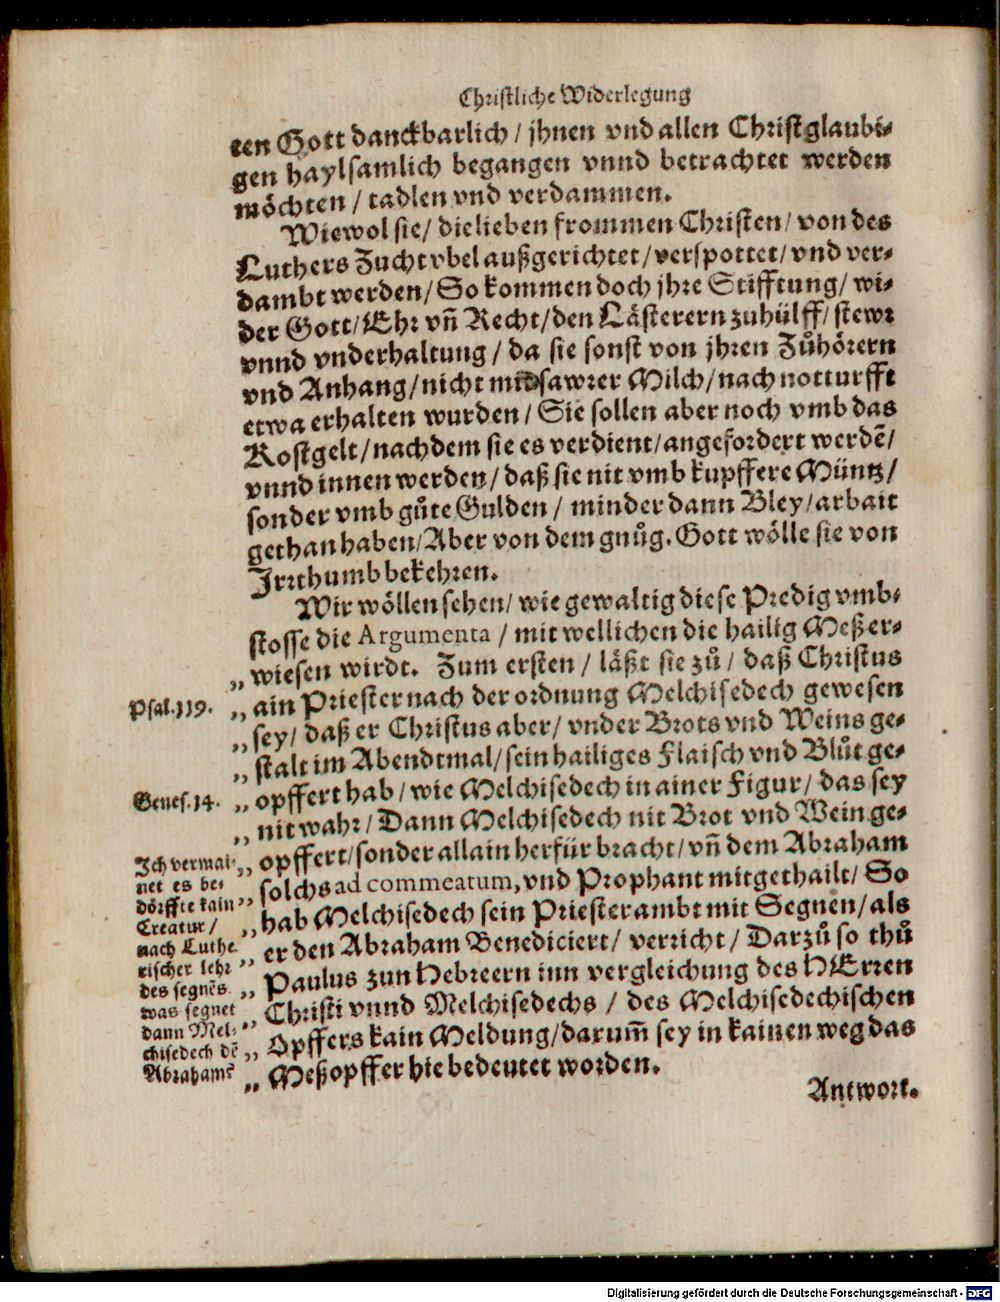 Christliche Widerlegung
ten Gott danckbarlich / jhnen vnd allen Christglaubi-
gen haylsamlich begangen vnnd betrachtet werden
möchten / tadlen vnd verdammen.
Wiewol sie / die lieben frommen Christen / von des
Luthers Zucht vbel außgerichtet / verspottet / vnd ver-
dambt werden / So kommen doch jhre Stifftung / wi-
der Gott / Ehr vñ Recht / den Lästerern zuhülff / stewr
vnnd vnderhaltung / da sie sonst von jhren Zůhörern
vnd Anhang / nicht mit sawrer Milch / nach notturfft
etwa erhalten wurden / Sie sollen aber noch vmb das
Kostgelt / nachdem sie es verdient / angefordert werdẽ /
vnnd innen werden / daß sie nit vmb kupffere Müntz /
sonder vmb gůte Gulden / minder dann Bley / arbait
gethan haben / Aber von dem gnůg. Gott wölle sie von
Irrthumb bekehren.
Wir wöllen sehen / wie gewaltig diese Predig vmb-
stosse die Argumenta / mit wellichen die hailig Meß er-
„ wiesen wirdt. Zum ersten / läßt sie zů / daß Christus
Psal. 119. „ ain Priester nach der ordnung Melchisedech gewesen
„ sey / daß er Christus aber / vnder Brots vnd Weins ge-
„ stalt im Abendtmal / sein hailiges Flaisch vnd Blůt ge-
Genes. 14. „ opffert hab / wie Melchisedech in ainer Figur / das sey
„ nit wahr / Dann Melchisedech nit Brot vnd Wein ge-
„ opffert / sonder allain herfür bracht / vñ dem Abraham
„ solchs ad commeatum, vnd Prophant mitgethailt / So
„ hab Melchisedech sein Priesterambt mit Segnen / als
„ er den Abraham Benediciert / verricht / Darzů so thů
„ Paulus zun Hebreern inn vergleichung des HErren
„ Christi vnnd Melchisedechs / des Melchisedechischen
„ Opffers kain Meldung / darum̃ sey in kainen weg das
„ Meßopffer hie bedeutet worden.
Ich vermai-
net es be-
dörffte kain
Creatur /
nach Luthe
rischer lehr
des segnẽs
was segnet
dann Mel-
chisedech dẽ
Abrahams
Antwort.
Digitalisierung gefördert durch die Deutsche Forschungsgemeinschaft - DFG